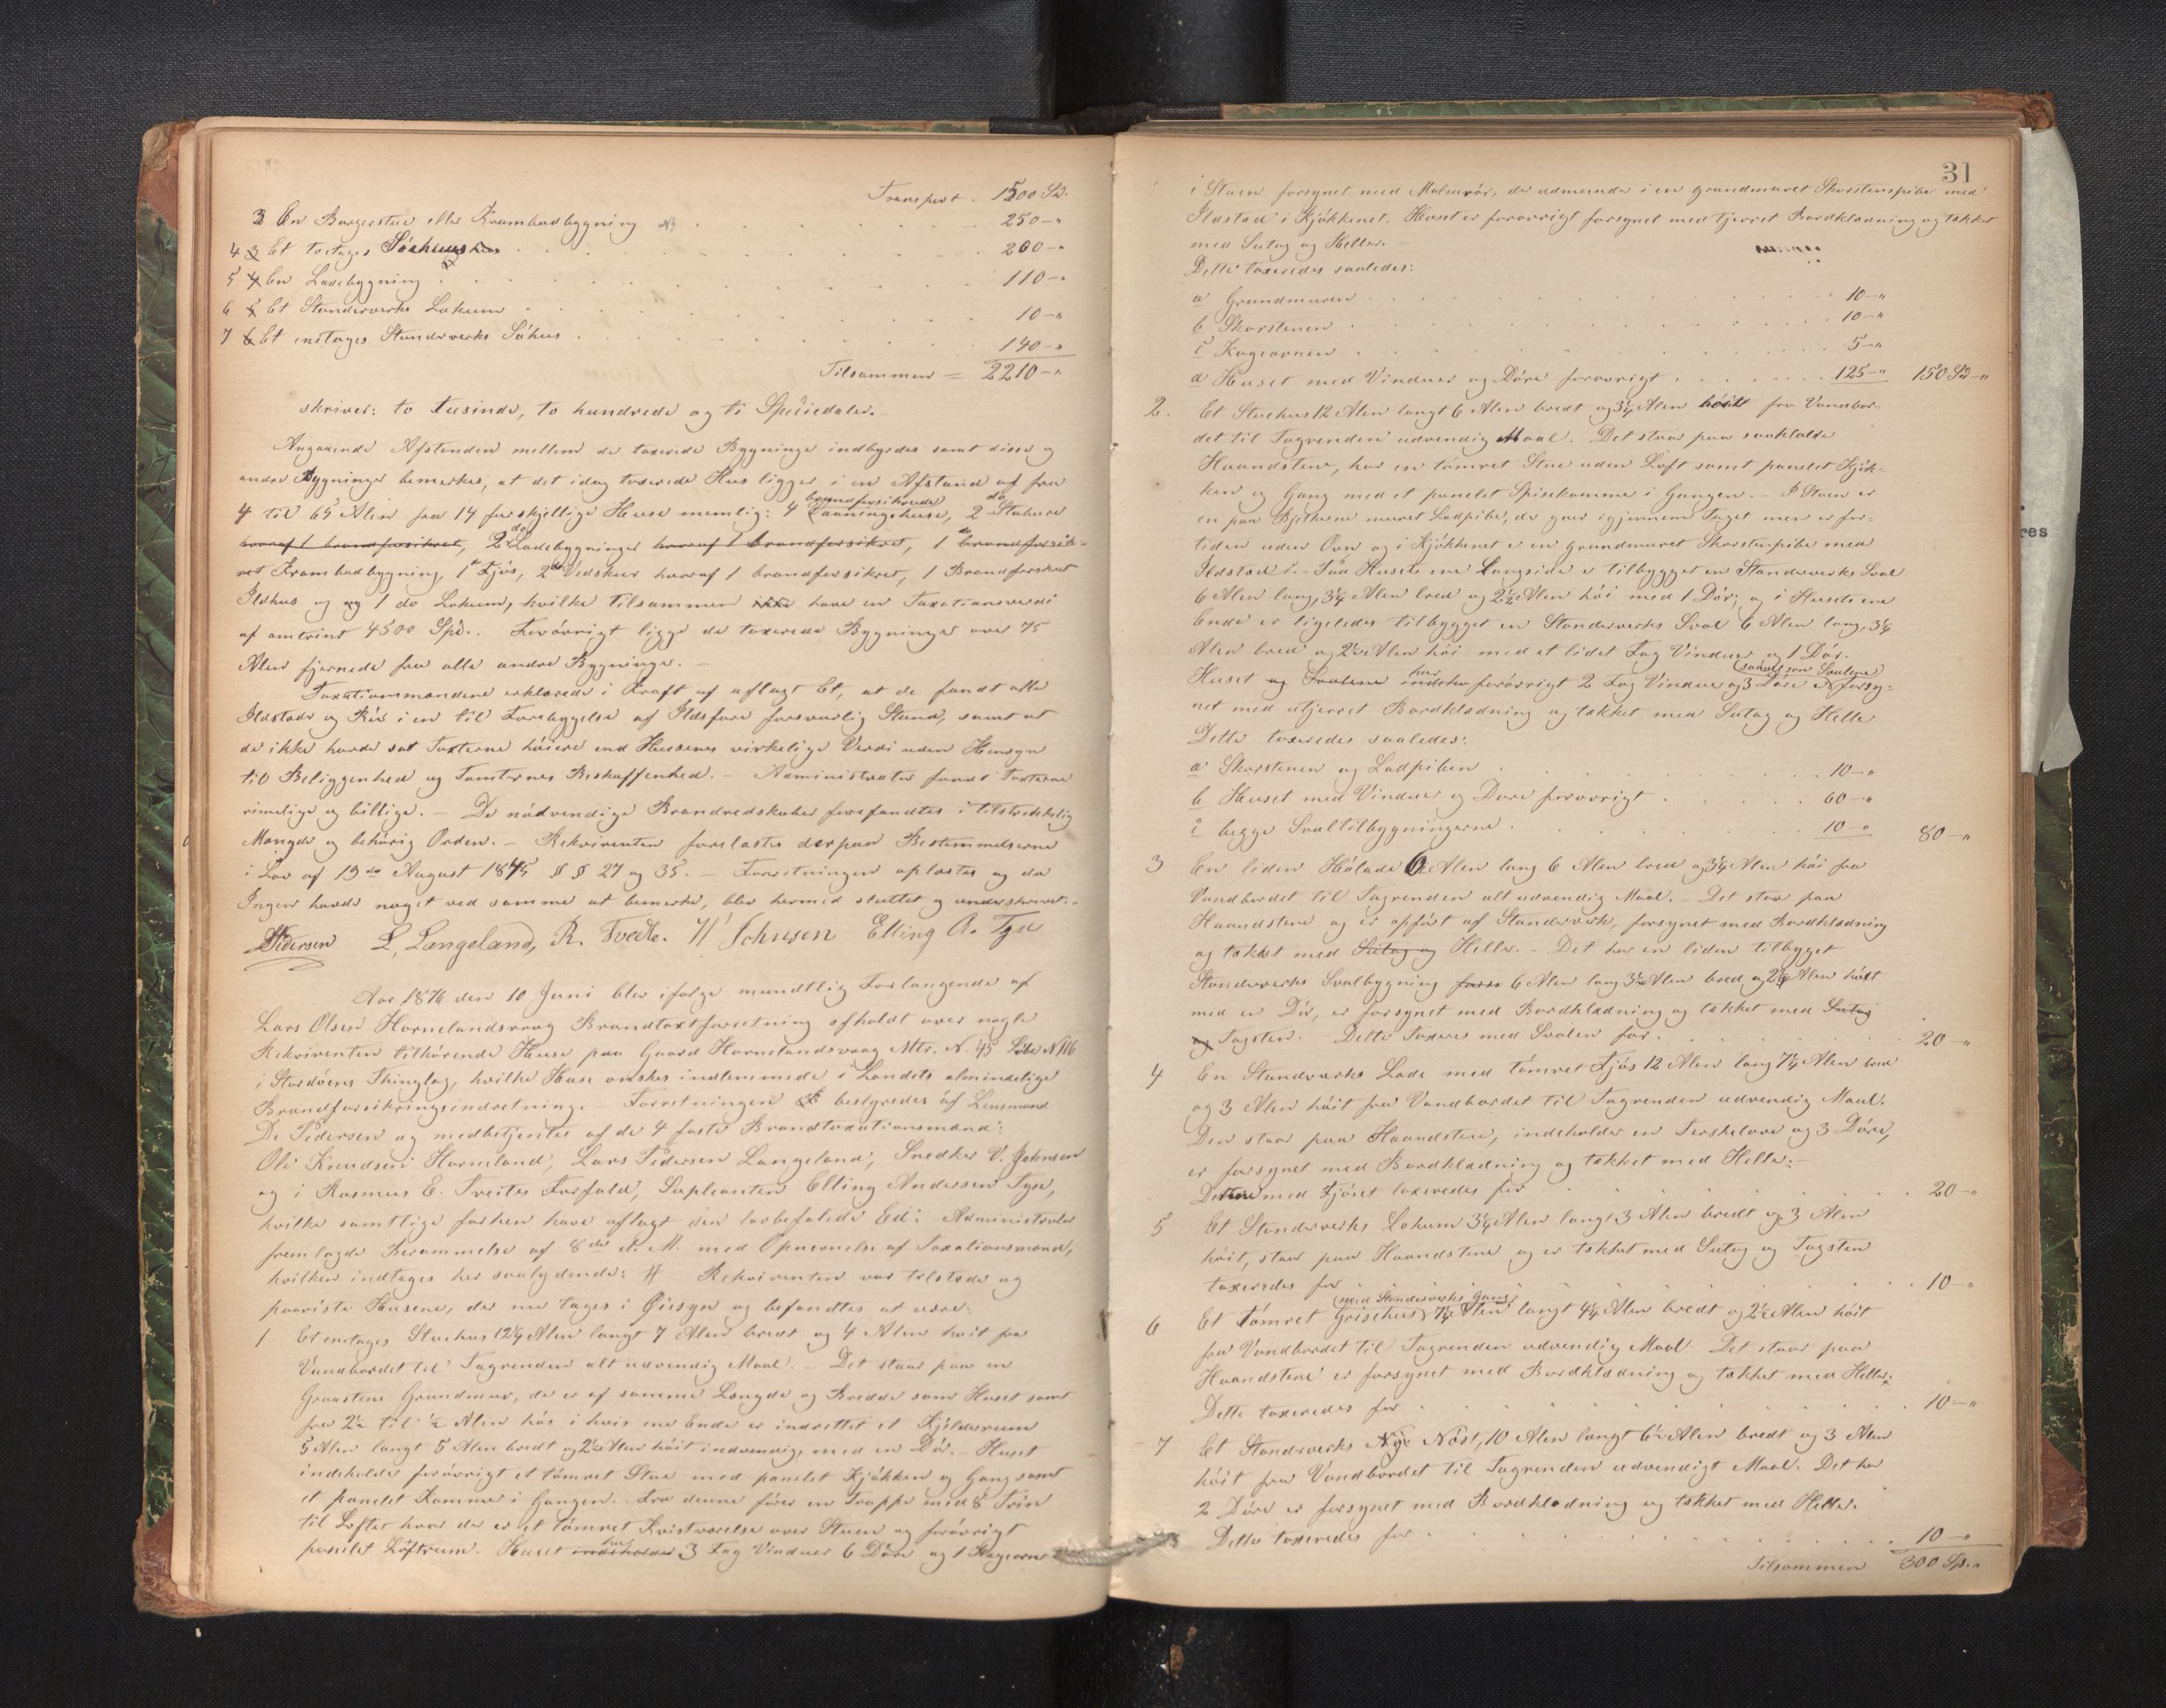 Transport . 1500 Sd.
3 En Borgerstue eller Krambodbygning . . . 250 – "
4 Et toetages Söehuus . . . 200 – "
5 En Ladebygning . . . 110 – "
6 Et Standerverks Lokum . . . 10 – "
7 Et enetages Standverks Söhus . . . 140 – "
Tilsammen = 2210 – "
skriver: to tusinde, to hundrede og ti Speciedaler. –
Angaaende Afstanden mellem de taxerede Bygninge indbyrdes samt disse og
andre Bygninger bemerkes, at det idag taxerede Hus ligger i en Afstand af fra
4 til 65 Alen fra 14 forskjellige Huse nemlig: 4 brandforsikrede Vaaningshuse, 2 do Stabure
hvoraf 1 brandforsikret, 2 do Ladebygninger hvoraf 1 brandforsikret, 1 do brandforsik-
ret Krambodbygning, 1 Fjös, 2 Vedskur hvoraf 1 brandforsikret, 1 Brandforsikret
Ildhus og og 1 do Lokum, hvilke tilsammen ikke have en Taxationsverdi
af omtrint 4500 Spd. Forövrigt ligge de taxerede Bygninger over 75
Alen fjernede fra alle andre Bygninge. –
Taxationsmændene erklærede i Kraft af aflagt Ed, at de fandt alle
Ildstade og Rör i en til Forebyggelse af Ildsfare forsvarlig Stand, samt at
de ikke havde sat Taxterne höiere end Husenes virkelige Verdi uden Hensyn
til Beliggenhed og Tomternes Beskaffenhed. – Administrator fandt Taxterne
rimelige og billige. – De nödvendige Brandredskaber forefandtes i tilstrekkelig
Mængde og behörig Orden. – Rekvirenten forelæstes derpaa Bestemmelserne
i Lov af 19de August 1845 §§ 27 og 35. – Forretningen oplæstes og da
Ingen havde noget ved samme at bemerke, blev hermed sluttet og underskrevet. –
Pedersen L. Langeland, R. Tveite. V Johnsen Elling A. Tyse
Aar 1876 den 10 Juni blev ifölge mundtlig Forlangende af
Lars Olsen Hornelandsvaag Brandtaxtforretning afholdt over nogle
Rekvirenten tilhörende Huse paa Gaard Hornelandsvaag Mtr. N. 45 Löbe N 116
i Stordöens Thinglag, hvilke Huse önskes indlemmede i Landets almindelige
Brandforsikringsindretning. – Forretningen bestyredes af Lensmand
De Pedersen og medbetjentes af de 4 faste Brandtaxationsmænd:
Ole Knudsen Horneland, Lars Pedersen Langeland, Snedker V. Johnsen
og i Rasmus E. Tveites Forfald, Supleanten Elling Andersen Tyse,
hvilke samtlige forhen have aflagt den lovbefalede Ed. Administrator
fremlagde Berammelse af 8de d. M. med Opnævnelse af Taxationsmænd,
hvilken indtages her saalydende: # Rekvirenten var tilstede og
paaviste Husene, der nu tages i Öiesyn og befandtes at være:
1 Et enetages Stuehus 12¾ Alen langt 7 Alen bredt og 4 Alen höit fra
Vandbordet til Tagrenden alt udvendig Maal. – Det staar paa en
Graastens Grundmur, der er af samme Længde og Bredde som Huset samt
fra 2½ til ½ Alen höi i hvis ene Ende er indrettet et Kjelderrum
5 Alen langt 5 Alen bredt og 2½ Alen höit indvendig, med en Dör. – Huset
indeholder forövrigt et tömret Stue med panelet Kjökken og Gang samt
et panelet Kammer i Gangen. Fra denne förer en Trappe med 8 Trin
til Loftet hvor der er et tömret Kvistværelse over Stuen og forövrigt
panelet Loftrum. Huset indeholder har 3 Fag Vinduer 6 Döre og 1 Kogeovn
31
i Stuen forsynet med Malmrör, der udmunder i en grundmuret Skorstenspibe med
Ildsted i Kjökkenet. Huset er forövrigt forsynet med tjerret Bordklædning og tækket
med Sutag og Heller. –
Dette taxeredes saaledes:
a Grundmuren . . . 10 – "
b Skorstenen . . . 10 – "
c Kogeovnen . . . 5 – "
d Huset med Vinduer og Döre forövrigt . . . 125 – " 150 Sd – "
2. Et Stuehus 12 Alen langt 6 Alen bredt og 3¼ Alen höit fra Vandbor-
det til Tagrenden udvendig Maal. Det staar paa saakaldte
Haandstene, har en tömret Stue uden Loft samt panelet Kjök-
ken og Gang med et panelet Spisekammer i Gangen. – I Stuen er
en paa Bjelkene muret Ladpibe, der gaar igjennem Taget men er for-
tiden uden Ovn og i Kjökkenet er en grundmuret Skorstenpibe med
Ildsted. – Paa Husets ene Langside er tilbygget en Standerverks Sval
6 Alen lang, 3¼ Alen bred og 2½ Alen höi med 1 Dör; og i Husets ene
Ende er ligeledes tilbygget en Standerverks Sval 6 Alen lang, 3¼
Alen bred og 2½ Alen höi med et lidet Fag Vinduer og 1 Dör.
Huset og Svalene har forövrigt 2 Fag Vinduer og 3 Döre (saavel som Svalene) forsy-
net med utjerret Bordklædning og tækket med Sutag og Helle
Dette taxeredes saaledes:
a Skorstenen og Ladpiben . . . 10 – "
b Huset med Vinduer og Döre forövrigt . . . 60 – "
c begge Svaltilbygningerne . . . 10 – " 80 – "
3 En liden Hölade 6 Alen lang 6 Alen bred og 3¼ Alen höi fra
Vandbordet til Tagrenden alt udvendig Maal. – Det staar paa
Haandstene og er opfört af Standerverk, forsynet med Bordklædning
og tækket med Sutag og Helle. – Det har en liden tilbygget
Standerverks Svalbygning 6 Alen lang 3½ Alen bred og 2¼ Alen höit
med en Dör, er forsynet med Bordklædning og tækket med Sutag
og Tagsten. Dette Taxeres med Svalen for . . . 20 – "
4 En Standverks Lade med tömret Fjös 12 Alen lang 7¼ Alen bred
og 3 Alen höit fra Vandbordet til Tagrenden udvendig Maal.
Den staar paa Haandstene, indeholder en Terskelove og 3 Döre,
er forsynet med Bordklædning og tækket med Helle. –
Denne med Fjöset taxeredes for . . . 20 – "
5 Et Standerverks Lokum 3¼ Alen langt 3 Alen bredt og 3 Alen
höit, staar paa Haandstene og er tækket med Sutag og Tagsten
taxeredes for . . . 10 – "
6 Et tömret Grisehus (med Standerverks Gang) 7¼ Alen langt 4¼ Alen bredt og 2½ Alen höit
fra Vandbordet til Tagrenden udvendig Maal. Det staar paa
Haandstene er forsynet med Bordklædning og tækket med Heller.
Dette taxeredes for . . . 10 – "
7 Et Standverks Nöst, 10 Alen langt 6½ Alen bredt og 3 Alen
höit fra Vandbordet til Tagrenden udvendigt Maal. Det har
2 Döre er forsynet med Bordklædning og tækket med Helle.
Dette taxeredes for . . . 10 – "
Tilsammen 300 Spd. "
res